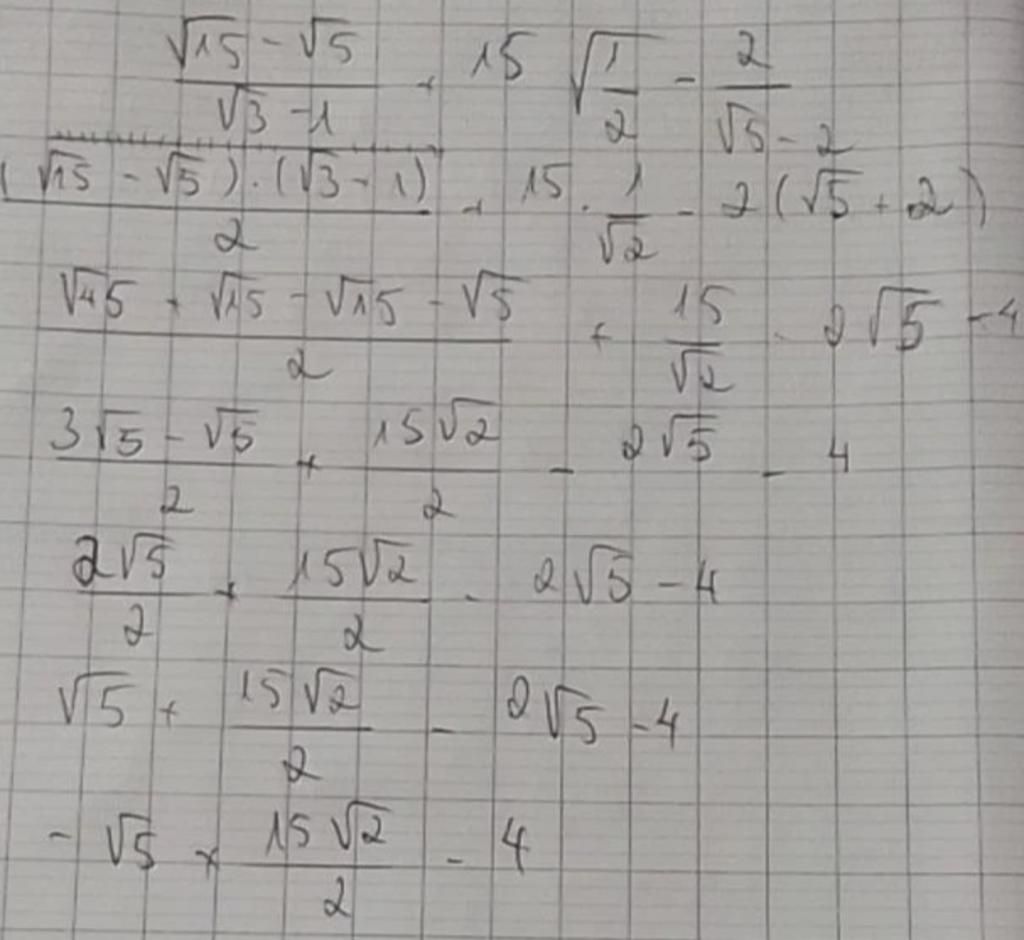 (√15 - √5)/(√3 - 1) + 15 √(1/2) - 2/(√5 - 2)
((√15 - √5) · (√3 - 1))/2 + 15 · 1/√2 - 2(√5 + 2)
(√45 + √15 - √15 - √5)/2 + 15/√2 - 2√5 - 4
(3√5 - √5)/2 + 15√2/2 - 2√5 - 4
2√5/2 + 15√2/2 - 2√5 - 4
√5 + 15√2/2 - 2√5 - 4
- √5 + 15√2/2 - 4